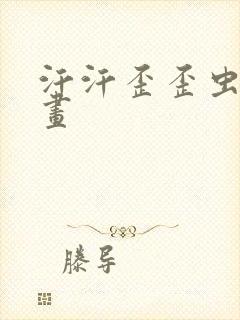 汙汗歪歪虫
畫
滕导